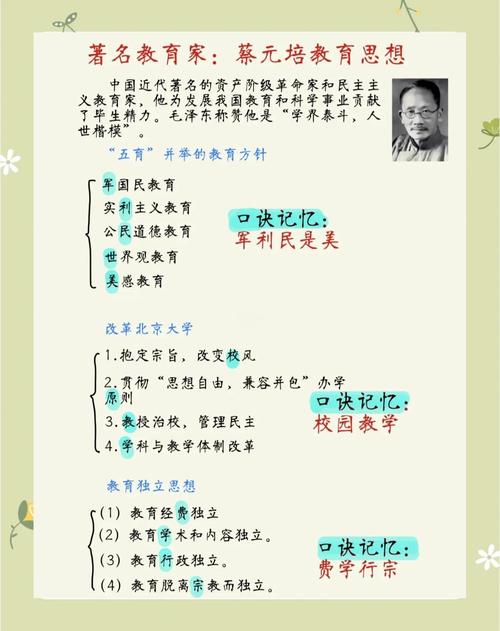 著名教育家：蔡元培教育思想
中国近代著名的资产阶级革命家和民主主
义教育家，他为发展我国教育和科学事业贡献
了毕生精力。毛泽东称赞他是“学界泰斗，人
世楷模”。
“五育”并举的教育方针
军国民教育
实利主义教育
公民道德教育
世界观教育
美感教育
口诀记忆：
军利民是美
改革北京大学
1.抱定宗旨，改变校风
2.贯彻“思想自由，兼容并包”办学
原则
3.教授治校，管理民主
4.学科与教学体制改革
口诀记忆：
校园教学
教育独立思想
(1) 教育经费独立
(2) 教育学术和内容独立。
(3) 教育行政独立。
(4) 教育脱离宗教而独立。
口诀记忆：
费学行宗